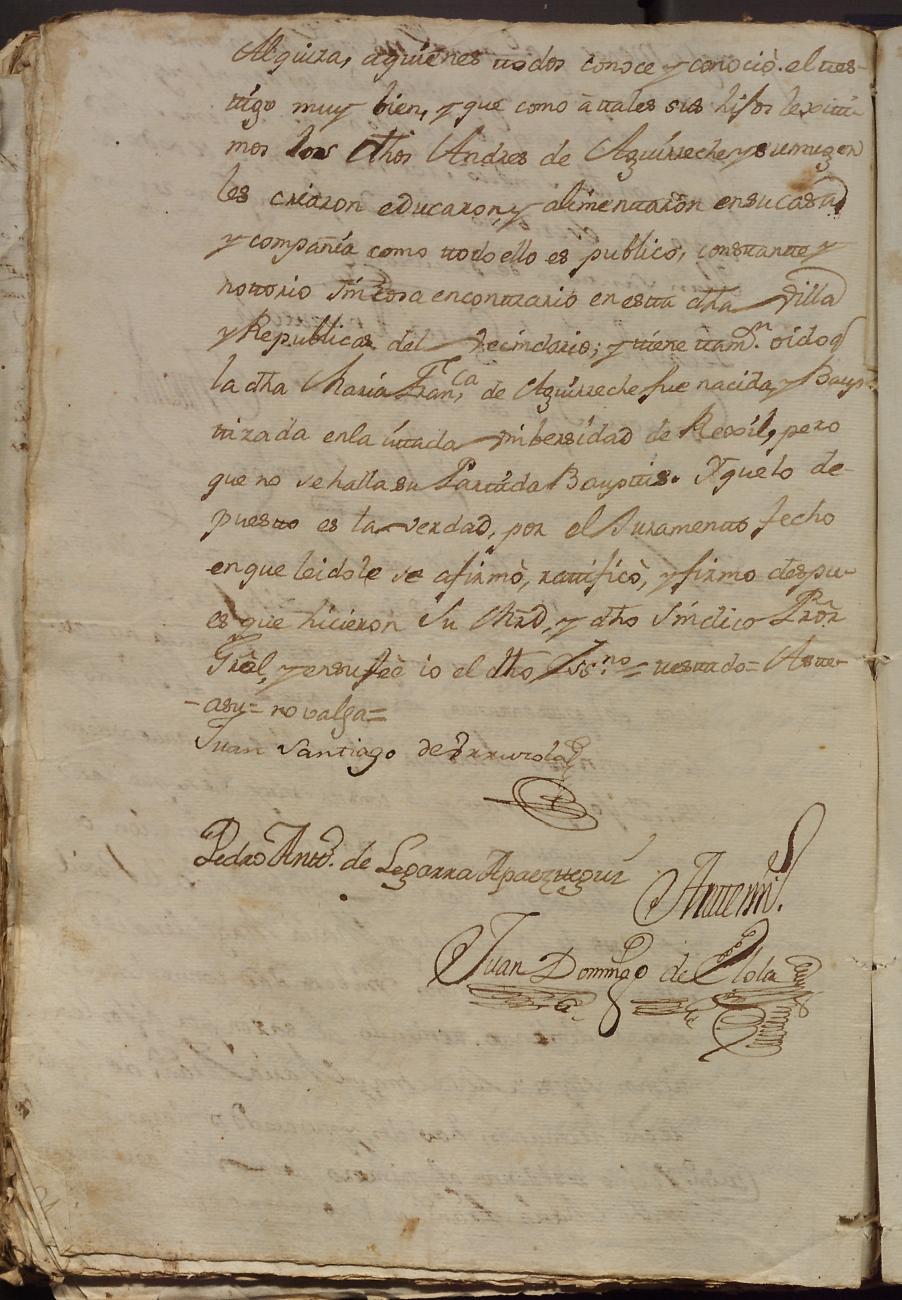 Alquiza, aquienes ttodos conoce y conociò. el ttes-
ttigo muy bien, y que como â ttales sus hijos lexitti-
mos los dhos Andres de Aguirreche y su muger
les criaron educaron, y alimenttaron en su casa,
y compañia como ttodo ello es publico, constantte y
nottorio sin cosa en conttrario en estta dha Villa
y Republicas del Vecindario; y ttiene ttamn. oido q
la dha Maria Franca, de Aguirreche fue nacida y Baup-
ttizada en la cittada Vnibersidad de Rexil, pero
que no se halla su Parttida Bauptis. Y que lo de-
puestto es la verdad, por el Juramentto fecho
en que leidole se afirmò, rattificò, y firmo despu-
es que hicieron Su Mrd, y dho Sindico Pror
Gràl, y en su feè io el dho Essno = ttesttado = Astte-
- asu = no valga =
Juan Santiago de Yrrurola
Pedro Antto. de Legarra Apaezttegui
Antte mi.
Juan Domingo de Elola